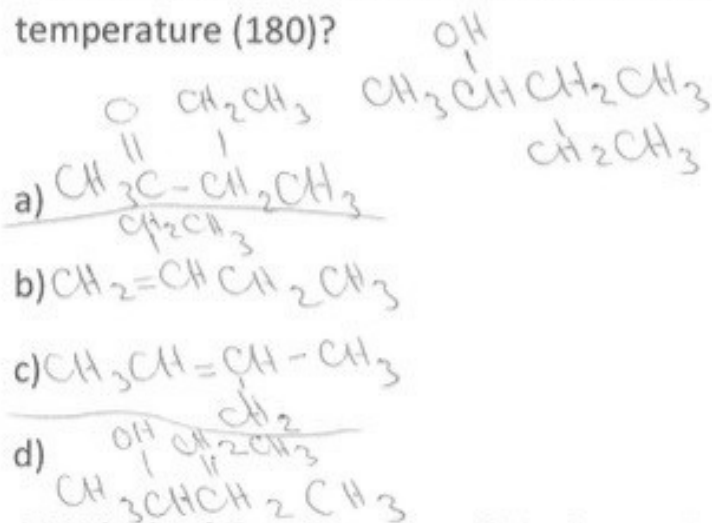 temperature (180)?
OH
CH3CHCH2CH3
CH2CH3
O CH2CH3
a) CH3C-CH2CH3
CH2CH3
b) CH2=CHCH2CH3
c) CH3CH=CH-CH3
CH2
d) OH CH2CH3
CH3CHCH2CH3